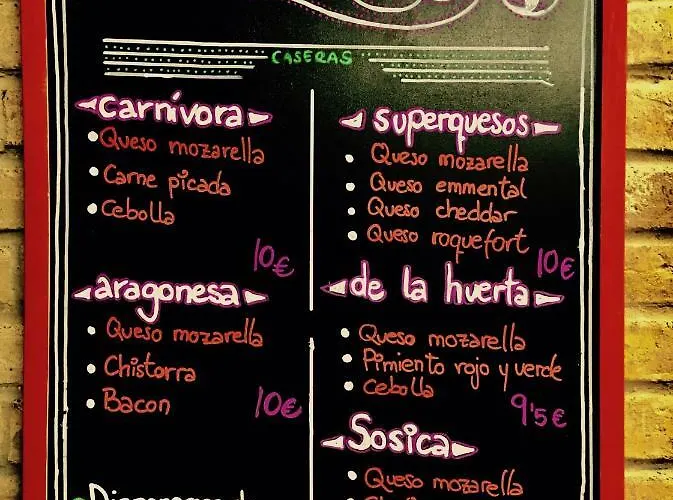 CASERAS
carnívora
Queso mozarella
Carne picada
Cebolla
10€
aragonesa
Queso mozarella
Chistorra
Bacon
10€
superquesos
Queso mozarella
Queso emmental
Queso cheddar
Queso roquefort
10€
de la huerta
Queso mozarella
Pimiento rojo y verde
cebolla
9'5€
Sosica
Queso mozarella